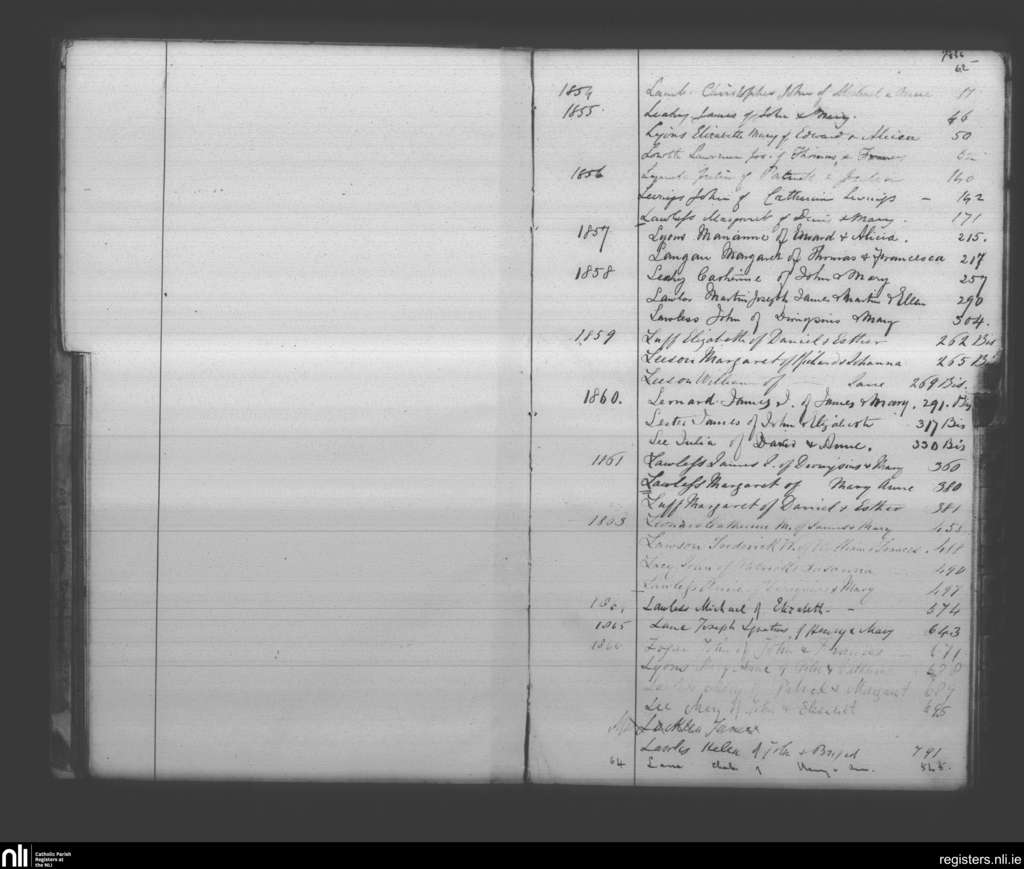 62
1854 Lamb Christopher John of Michael & Anne 17
1855 Leahy James of John & Mary. 46
Lyons Elizabeth Mary of Edward & Alicia 50
Louth Lawrence of Thomas &
1856 Julia of Patrick & 140
John of Catherine – 142
Lawless Margaret of Denis & Mary. 171
1857 Lyons Marianne of Edward & Alicia. 215.
Langan Margaret of Thomas & Francesca 217
1858 Leahy Catherine of John & Mary 257
Lawlor Martin Joseph James of Martin & Ellen 290
Lawless John of Dionysius & Mary 304.
1859 Luff Elizabeth of Daniel & Esther 262 Bis
Leeson Margaret of Richard & Johanna 265 Bis
Leeson William of — Jane 269 Bis.
1860. Leonard James J. of James & Mary. 291. Bis
Lester James of John & Elizabeth 317 Bis
Lee Julia of David & Anne. 330 Bis
1861 Lawless James J. of Dionysius & Mary 360
Lawless Margaret of Mary Anne 380
Luff Margaret of Daniel & Esther 381
1863 Leonard Catherine M. of James & Mary 453
Lawson Frederick of William & Frances.
Lacy of & Susanna 490
Lawless of Dionysius & Mary 497
Lawless Michael of Elizabeth - - 574
1865 Lane Joseph Ignatius of Henry & Mary 643
John of John & Frances 671
Lyons Mary Anne of John &
Mary of Patrick & Margaret 689
Lee Mary of John & Elizabeth 695
James
Lawless Helen of John & Brigid 791
64 Lane of Henry &
nli Catholic Parish
Registers at
the NLI
registers.nli.ie